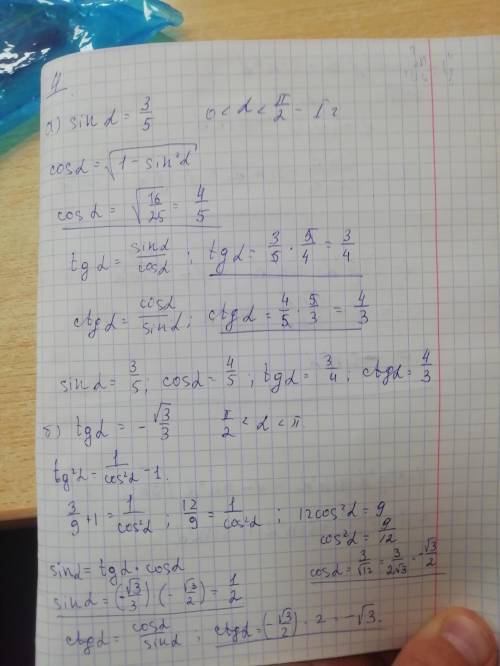 4.
а) sin α = 3/5   0 < α < π/2 - I г
cosα = √(1 - sin²α)
cosα = √(16/25) = 4/5
tgα = sinα/cosα ; tgα = 3/5 · 5/4 = 3/4
ctgα = cosα/sinα ; ctgα = 4/5 · 5/3 = 4/3
sinα = 3/5; cosα = 4/5; tgα = 3/4; ctgα = 4/3
б) tgα = -√3/3   π/2 < α < π
tg²α = 1/cos²α - 1.
3/9 + 1 = 1/cos²α ; 12/9 = 1/cos²α ; 12cos²α = 9
cos²α = 9/12
cosα = 3/√12 = 3/2√3 = -√3/2
sinα = tgα · cosα
sinα = (-√3/3) (-√3/2) = 1/2
ctgα = cosα/sinα ; ctgα = (-√3/2) · 2 = -√3.